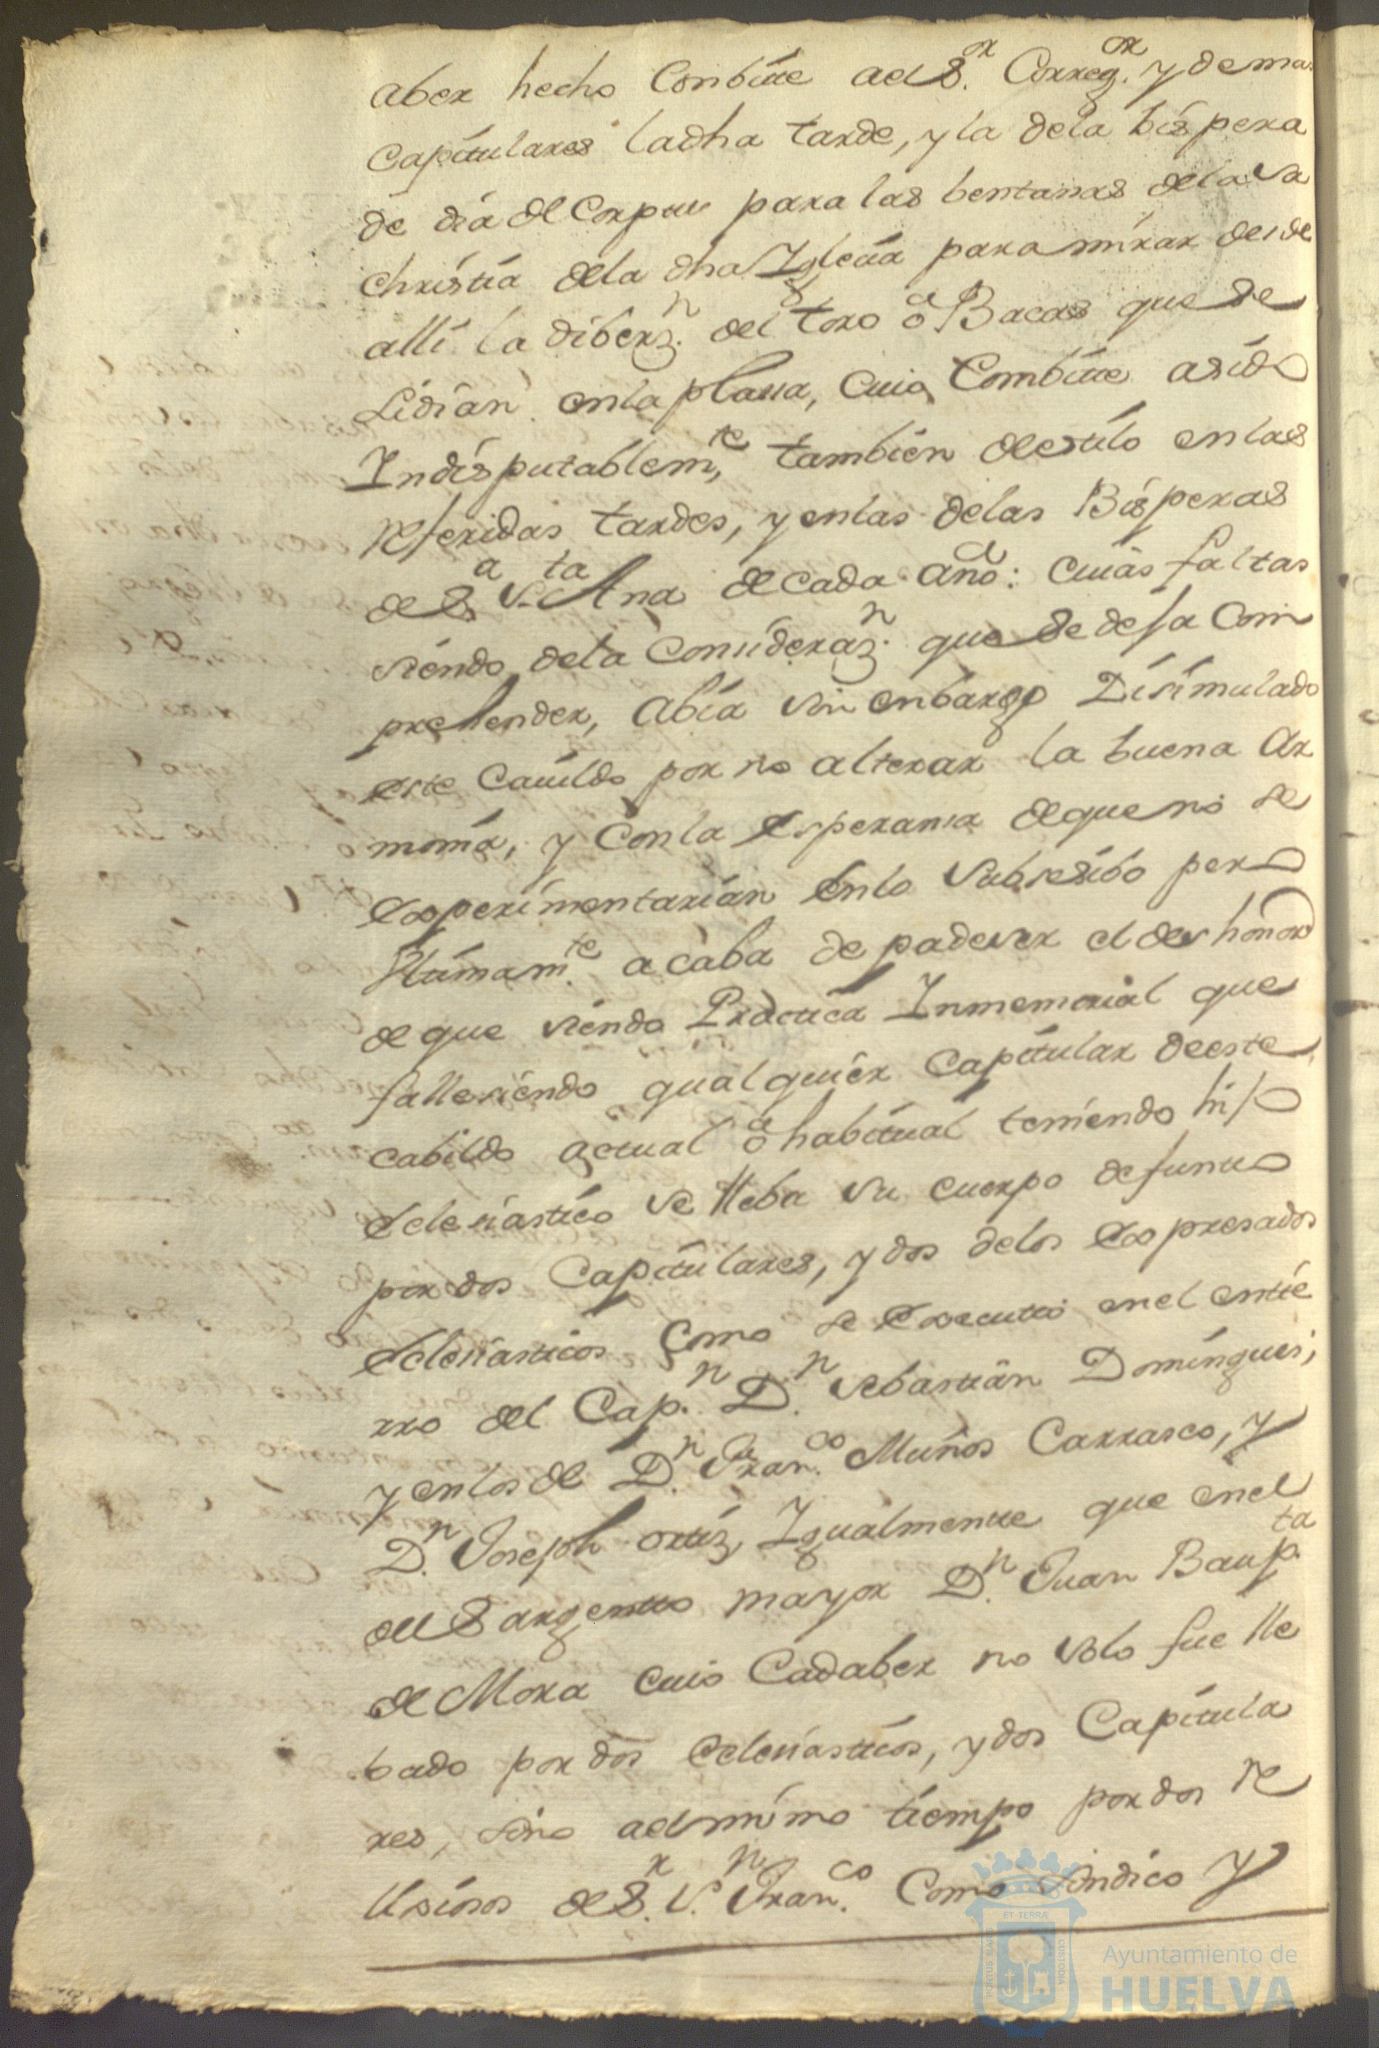 aber hecho Conbitte ael S.or Correg.or y demas
Capitulares la dha tarde, y la dela bispera
de dia del Corpus para las bentanas dela sa
christia dela dha Iglecia para mirar desde
alli la diberz.n del toro ó Bacas que se
Lidian en la plassa, cuio Combitte a sido
Indisputablem.te tambien de estilo en las
referidas tardes, y en las delas Bisperas
de S.a S.ta Ana de cada año: cuias faltas
siendo dela Consideraz.n que se defa Com
prehender, abia sin enbargo Disimulado
este Cavildo por no alterar la buena Ar
monia, y Con la esperansa de que no se
experimentarian en lo Subsesibo pero
Ultimam.te acaba de padeser el deshonor
de que siendo Practica Inmemorial que
fallesiendo qualquier Capitular de este
cabildo actual ó habitual teniendo hifo
eclesiastico se lleba su cuerpo defunto
por dos Capitulares, y dos delos expresados
eclesiasticos como se executtó en el entie
rro del Cap.n D.n Sebastian Domingues;
y en los de D.n Fran.co Muños Carrasco, y
D.n Joseph ortiz, Igualmentte que en el
del Sargentto mayor D.n Juan Baup.ta
de Mora cuio Cadaber no solo fue lle
bado por dos eclesiasticos, y dos Capitula
res, sino ael mismo tiempo por dos Re
lisiosos de S.r S.n Fran.co Como Sindico y
Ayuntamiento de
HUELVA